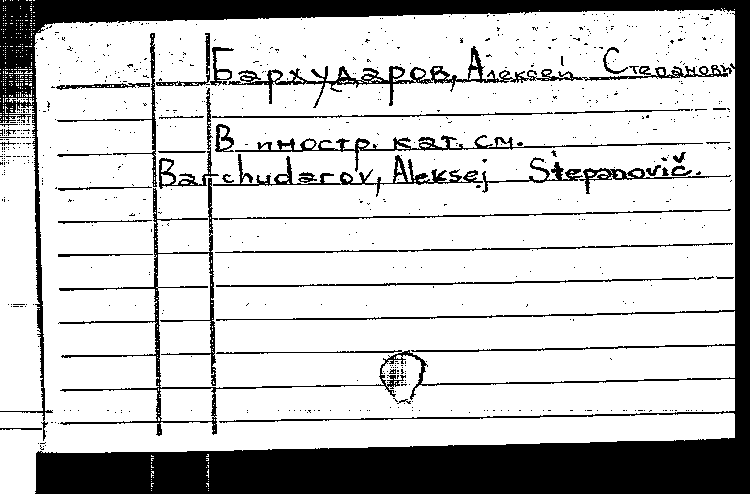 Бархударов, Алексей Степанович
В иностр. кат. см.
Barchudarov, Aleksej Stepanovič.